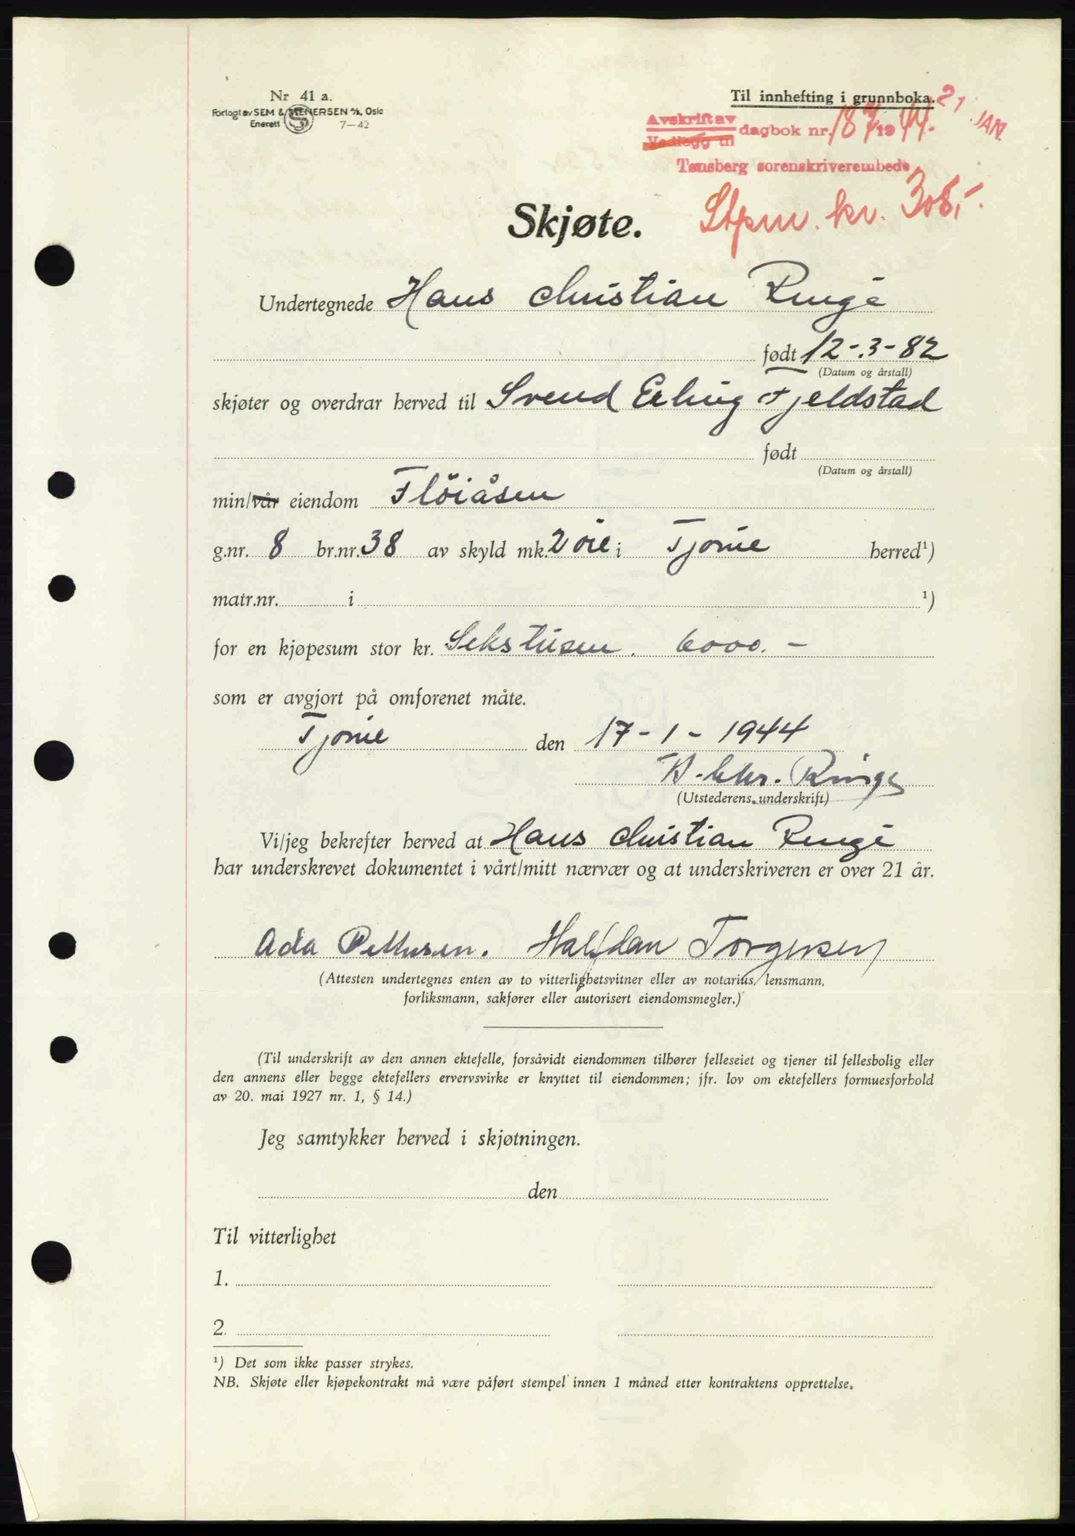 Nr 41 a.
Forlagt av SEM & STENERSEN A/S, Oslo
Enerett 7-42
Til innhefting i grunnboka.
21 JAN.
Avskrift av
Vedlegg til dagbok nr. 187 1944.
Tønsberg sorenskriverembede
Stpm. kr. 308,-
Skjøte.
Undertegnede Hans Christian Ringe
født 12-3-82
(Datum og årstall)
skjøter og overdrar herved til Svend Erling Fjeldstad
født
(Datum og årstall)
min/vår eiendom Flöiåsen
g.nr. 8 br.nr. 38 av skyld mk. 2 øre i Tjøme herred¹)
matr.nr. i ¹)
for en kjøpesum stor kr. Sekstusen. 6000.-
som er avgjort på omforenet måte.
Tjøme den 17-1-1944
H. Chr. Ringe
(Utstederens underskrift)
Vi/jeg bekrefter herved at Hans Christian Ringe
har underskrevet dokumentet i vårt/mitt nærvær og at underskriveren er over 21 år.
Ada Pettersen. Halfdan Torgersen
(Attesten undertegnes enten av to vitterlighetsvitner eller av notarius, lensmann,
forliksmann, sakfører eller autorisert eiendomsmegler.)
(Til underskrift av den annen ektefelle, forsåvidt eiendommen tilhører felleseiet og tjener til fellesbolig eller
den annens eller begge ektefellers ervervsvirke er knyttet til eiendommen; jfr. lov om ektefellers formuesforhold
av 20. mai 1927 nr. 1, § 14.)
Jeg samtykker herved i skjøtningen.
den
Til vitterlighet
1.
2.
¹) Det som ikke passer strykes.
NB. Skjøte eller kjøpekontrakt må være påført stempel innen 1 måned etter kontraktens opprettelse.